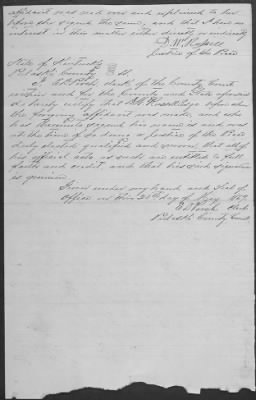 affidavit was read over and explained to him
before she signed the same, and that I have no
interest in this matter either directly or indirectly
Justice of the Peace
State of Kentucky
Pulaski County Sct.
Clerk of the County Court
within and for the County and State aforesaid
do hereby certify that before whom
the foregoing affidavit was made, and who
has thereunto signed his name is and was
at the time of so doing a Justice of the Peace
duly elected qualified and sworn, that all of
his official acts as such are entitled to full
faith and credit, and that his said signature
is genuine
Given under my hand and Seal of
Office on this day of
Clerk
Pulaski County Court